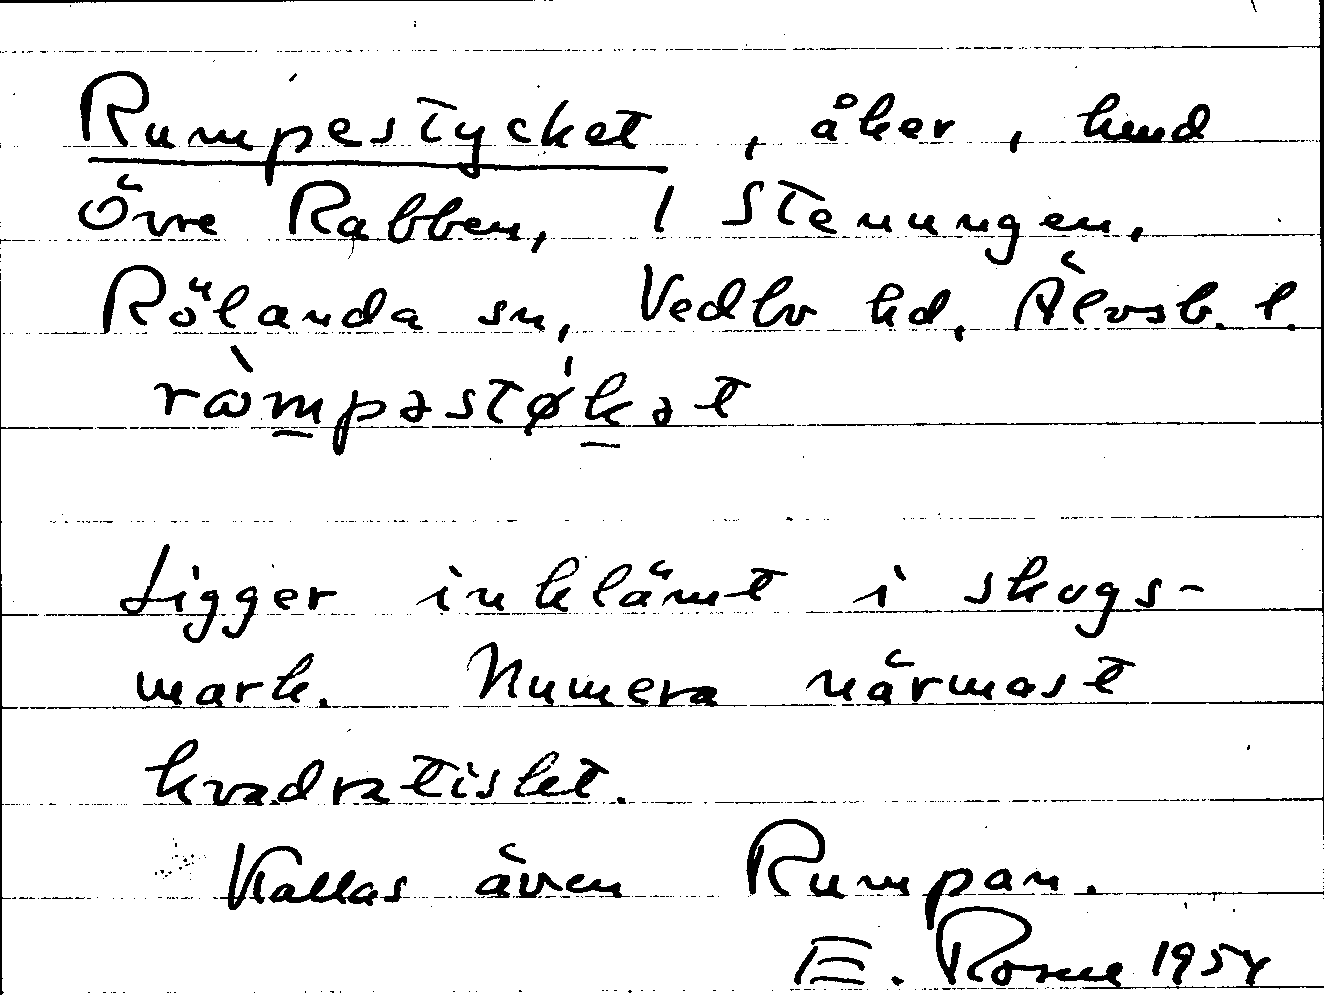 Rumpestycket, åker, hmd
Övre Rabben, 1 Stenungen,
Rölanda sn, Vedbo hd, Älvsb. l.
ròmpəstø̀kət
Ligger inklämt i skogs-
mark. Numera närmast
kvadratiskt.
Kallas även Rumpan.
E. 1954